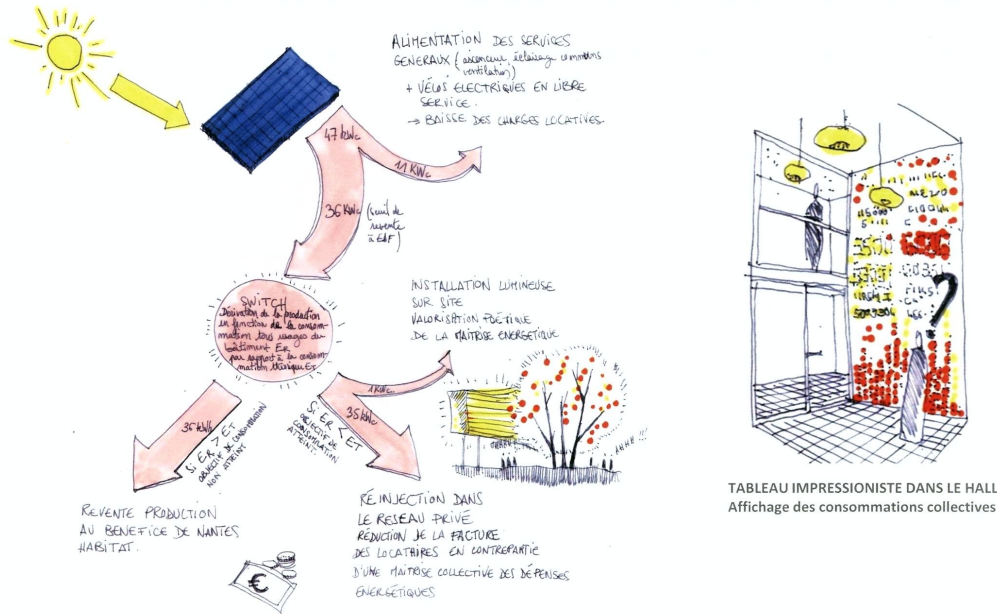 ALIMENTATION DES SERVICES
GENERAUX (ascenceur éclairage communs
ventilation)
+ VÉLOS ÉLECTRIQUES EN LIBRE
SERVICE.
→ BAISSE DES CHARGES LOCATIVES.
47 KWc
11 KWc
36 KWc
(seuil de
revente
à EDF)
SWITCH
Dérivation de la production
en fonction de la consom-
mation tous usages du
bâtiment ER
par rapport à la consom-
mation théorique ET
INSTALLATION LUMINEUSE
SUR SITE
VALORISATION POÉTIQUE
DE LA MAITRISE ENERGETIQUE
1 KWc
35 KWc
Si ER < ET
OBJECTIF DE
CONSOMMATION
ATTEINT
Si ER > ET
OBJECTIF DE CONSOMMATION
NON ATTEINT
REVENTE PRODUCTION
AU BENEFICE DE NANTES
HABITAT.
€
RÉINJECTION DANS
LE RESEAU PRIVÉ
RÉDUCTION DE LA FACTURE
DES LOCATAIRES EN CONTREPARTIE
D'UNE MAITRISE COLLECTIVE DES DÉPENSES
ENERGÉTIQUES
?
TABLEAU IMPRESSIONISTE DANS LE HALL
Affichage des consommations collectives